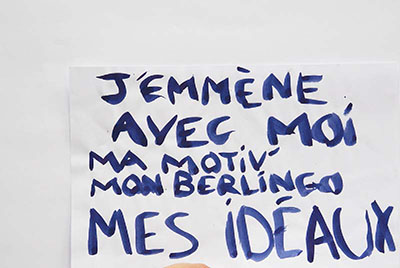 J'EMMÈNE
AVEC MOI
MA MOTIV'
MON BERLINGO
MES IDÉAUX